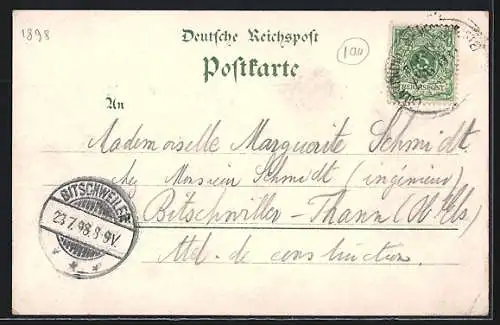 1898
Deutsche Reichspost
Postkarte
An
Mademoiselle Marguerite Schmidt.
chez Monsieur Schmidt (ingénieur)
Bitschwiller-Thann (Ob Els)
Atel. de construction.
BITSCHWEILER
23.7.98.8-9V.
5
REICHSPOST